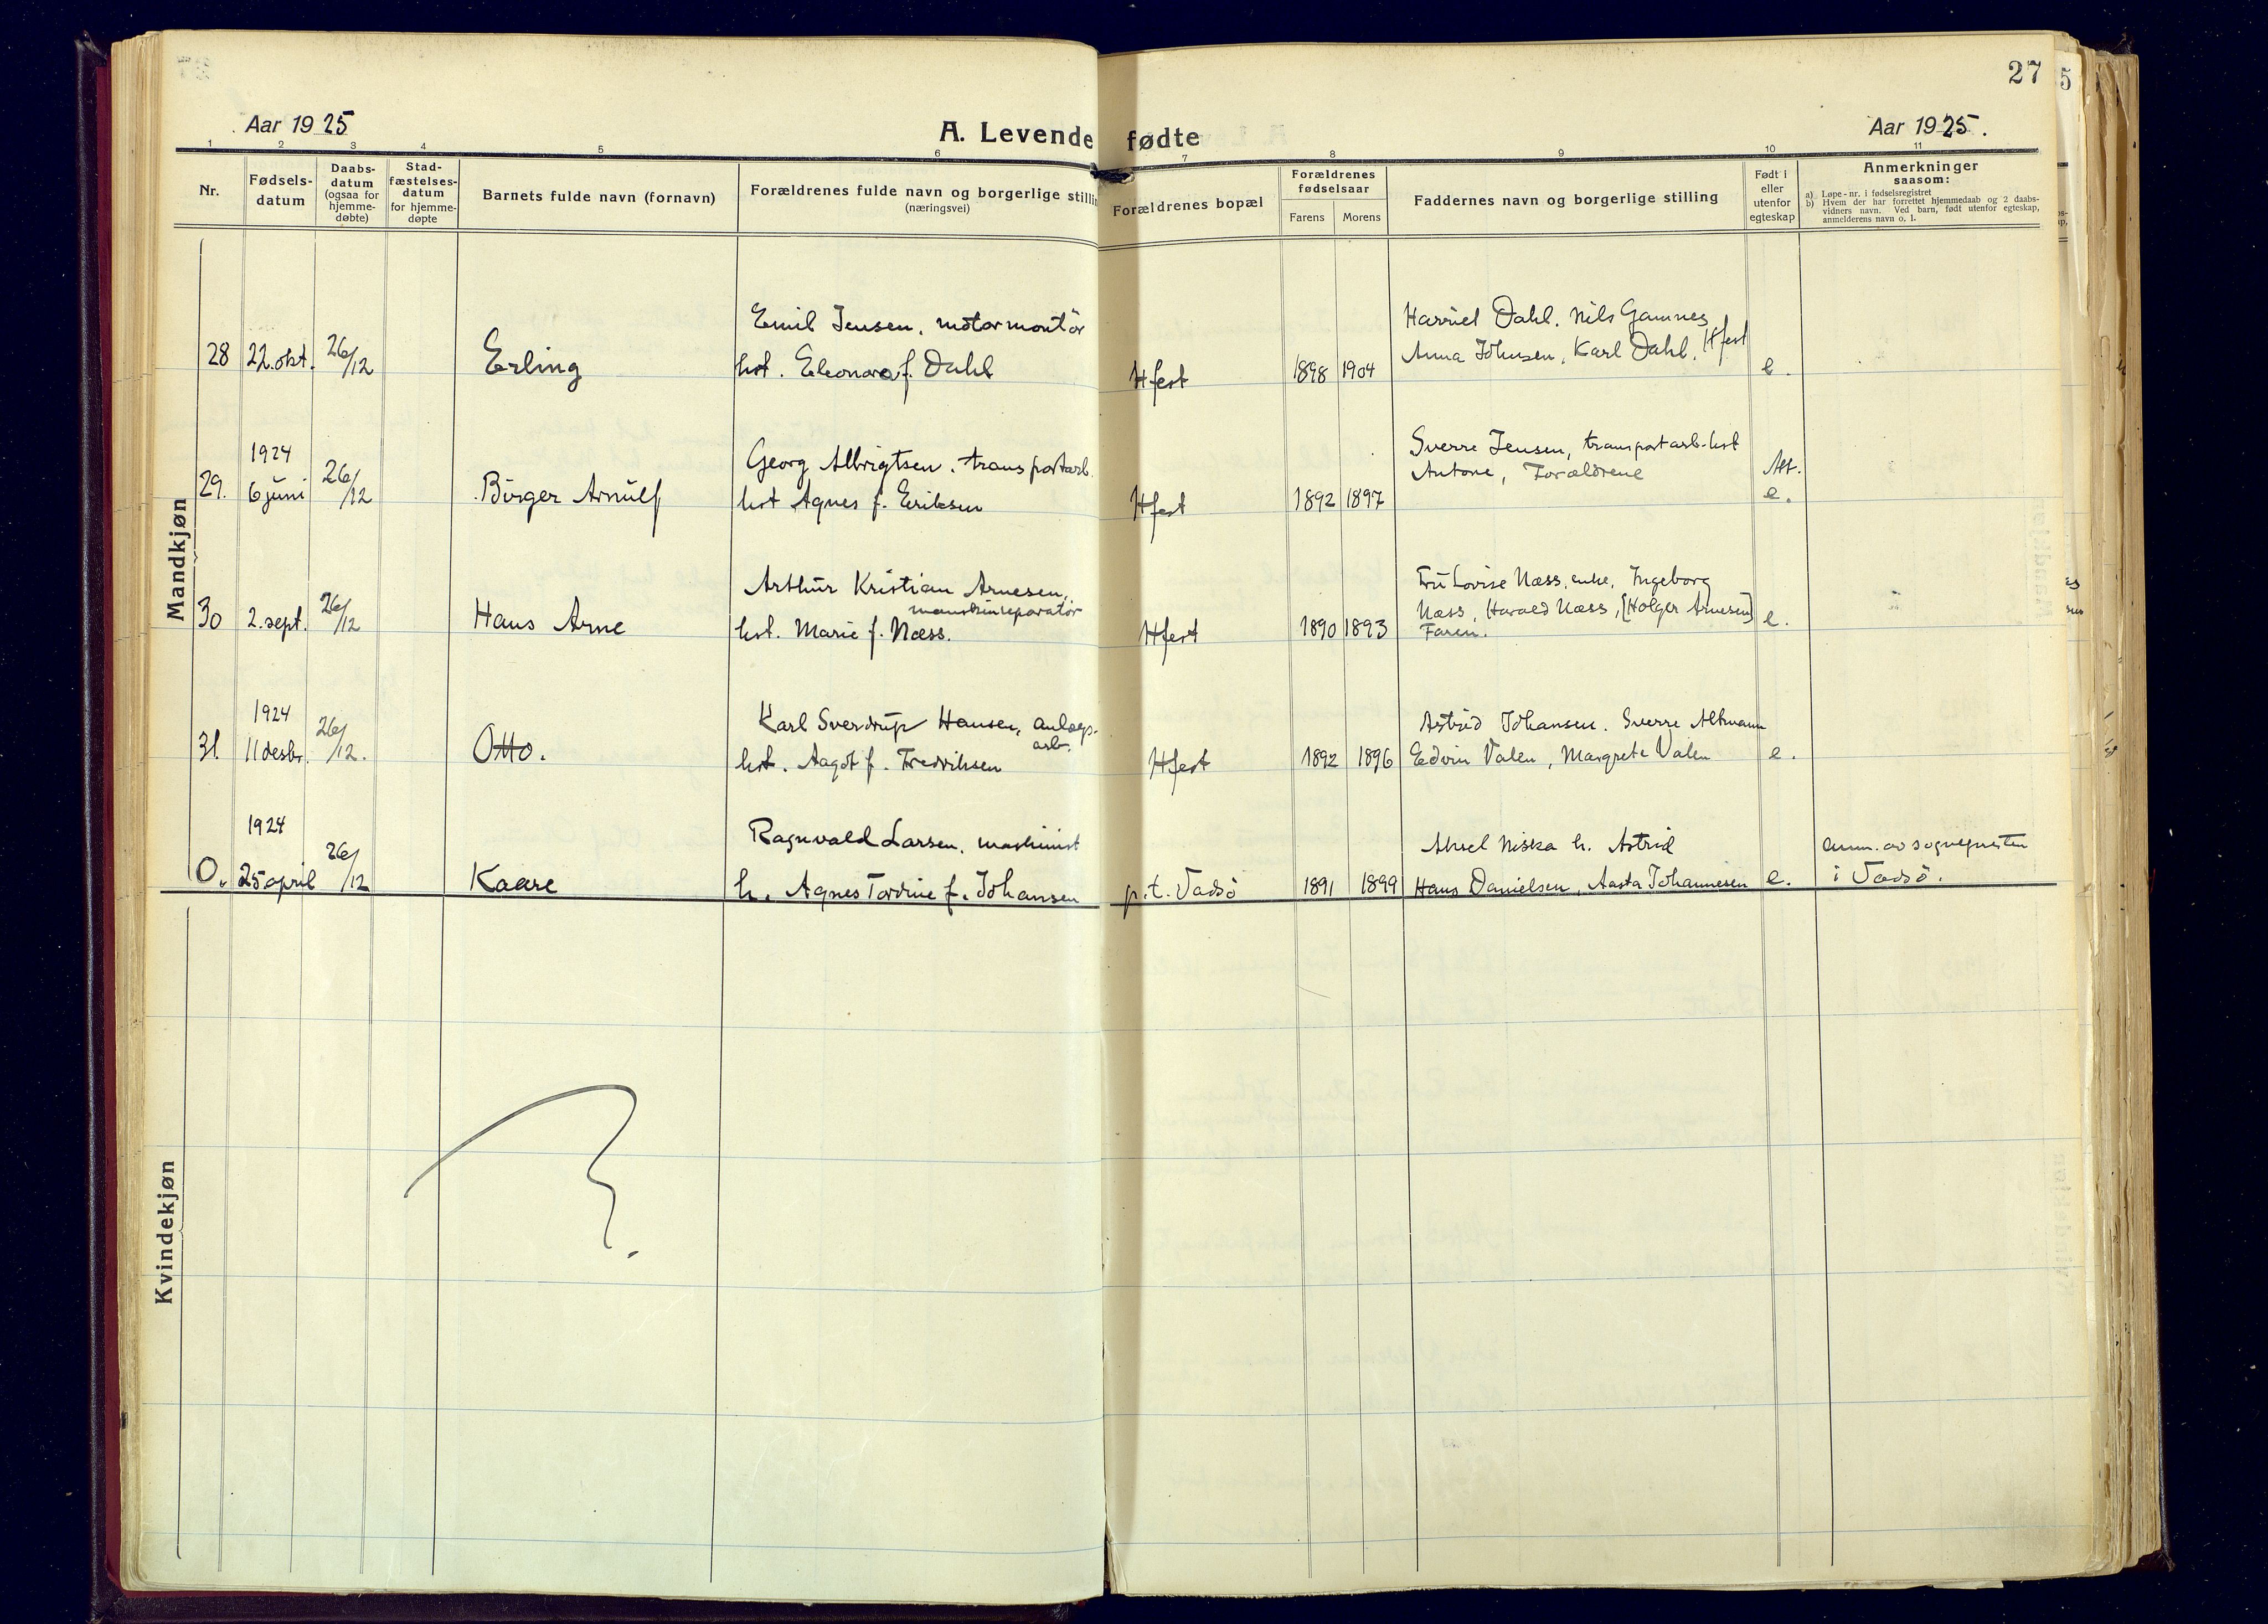 27
5
Aar 1925
A. Levende fødte
Aar 1925.
1 2 3 4 5 6 7 8 9 10 11
Nr.
Fødsels-
datum
Daabs-
datum
(ogsaa for
hjemme-
døbte)
Stad-
fæstelses-
datum
for hjemme-
døpte
Barnets fulde navn (fornavn)
Forældrenes fulde navn og borgerlige stillin
(næringsvei)
Forældrenes bopæl
Forældrenes
fødselsaar
Farens Morens
Faddernes navn og borgerlige stilling
Født i
eller
utenfor
egteskap
Anmerkninger
saasom:
a) Løpe-nr. i fødselsregistret
b) Hvem der har forrettet hjemmedaab og 2 daabs-
vidners navn. Ved barn, født utenfor egteskap,
anmelderens navn o. l.
Mandkjøn
28 22. okt. 26/12 Erling
Emil Jensen, motormontör
hst. Eleonora f. Dahl
Hfest 1898 1904
Harriet Dahl. Nils Gamnes
Anna Johnsen, Karl Dahl. Hfest
e.
29. 1924
6 juni 26/12 Birger Arnulf
Georg Albrigtsen. transportarb.
hst Agnes f. Eriksen
Hfest 1892 1897
Sverre Jensen, transportarb-hst
Antone, Forældrene
Alt.
e.
30 2. sept. 26/12 Hans Arne
Arthur Kristian Arnesen,
maskinreparatör
hst. Marie f. Næss.
Hfest 1890 1893
Fru Lovise Næss, enke, Ingeborg
Næss, Harald Næss, [Holger Arnesen]
Faren.
e.
31. 1924
11 desbr. 26/12. Otto.
Karl Sverdrup Hansen, anlægs-
arb.
hst. Aagot f. Fredriksen
Hfest 1892 1896
Astrid Johansen. Sverre Altmann
Edvin Valen, Margrete Valen
e.
0. 1924
25 april 26/12 Kaare
Ragnvald Larsen, maskinist
h. Agnes Tordine f. Johansen
p.t. Vadsö 1891 1899
Aksel Niska h. Astrid
Hans Danielsen, Aasta Johannesen
e.
anm. av sogneprsten
i Vadsö.
Kvindekjøn